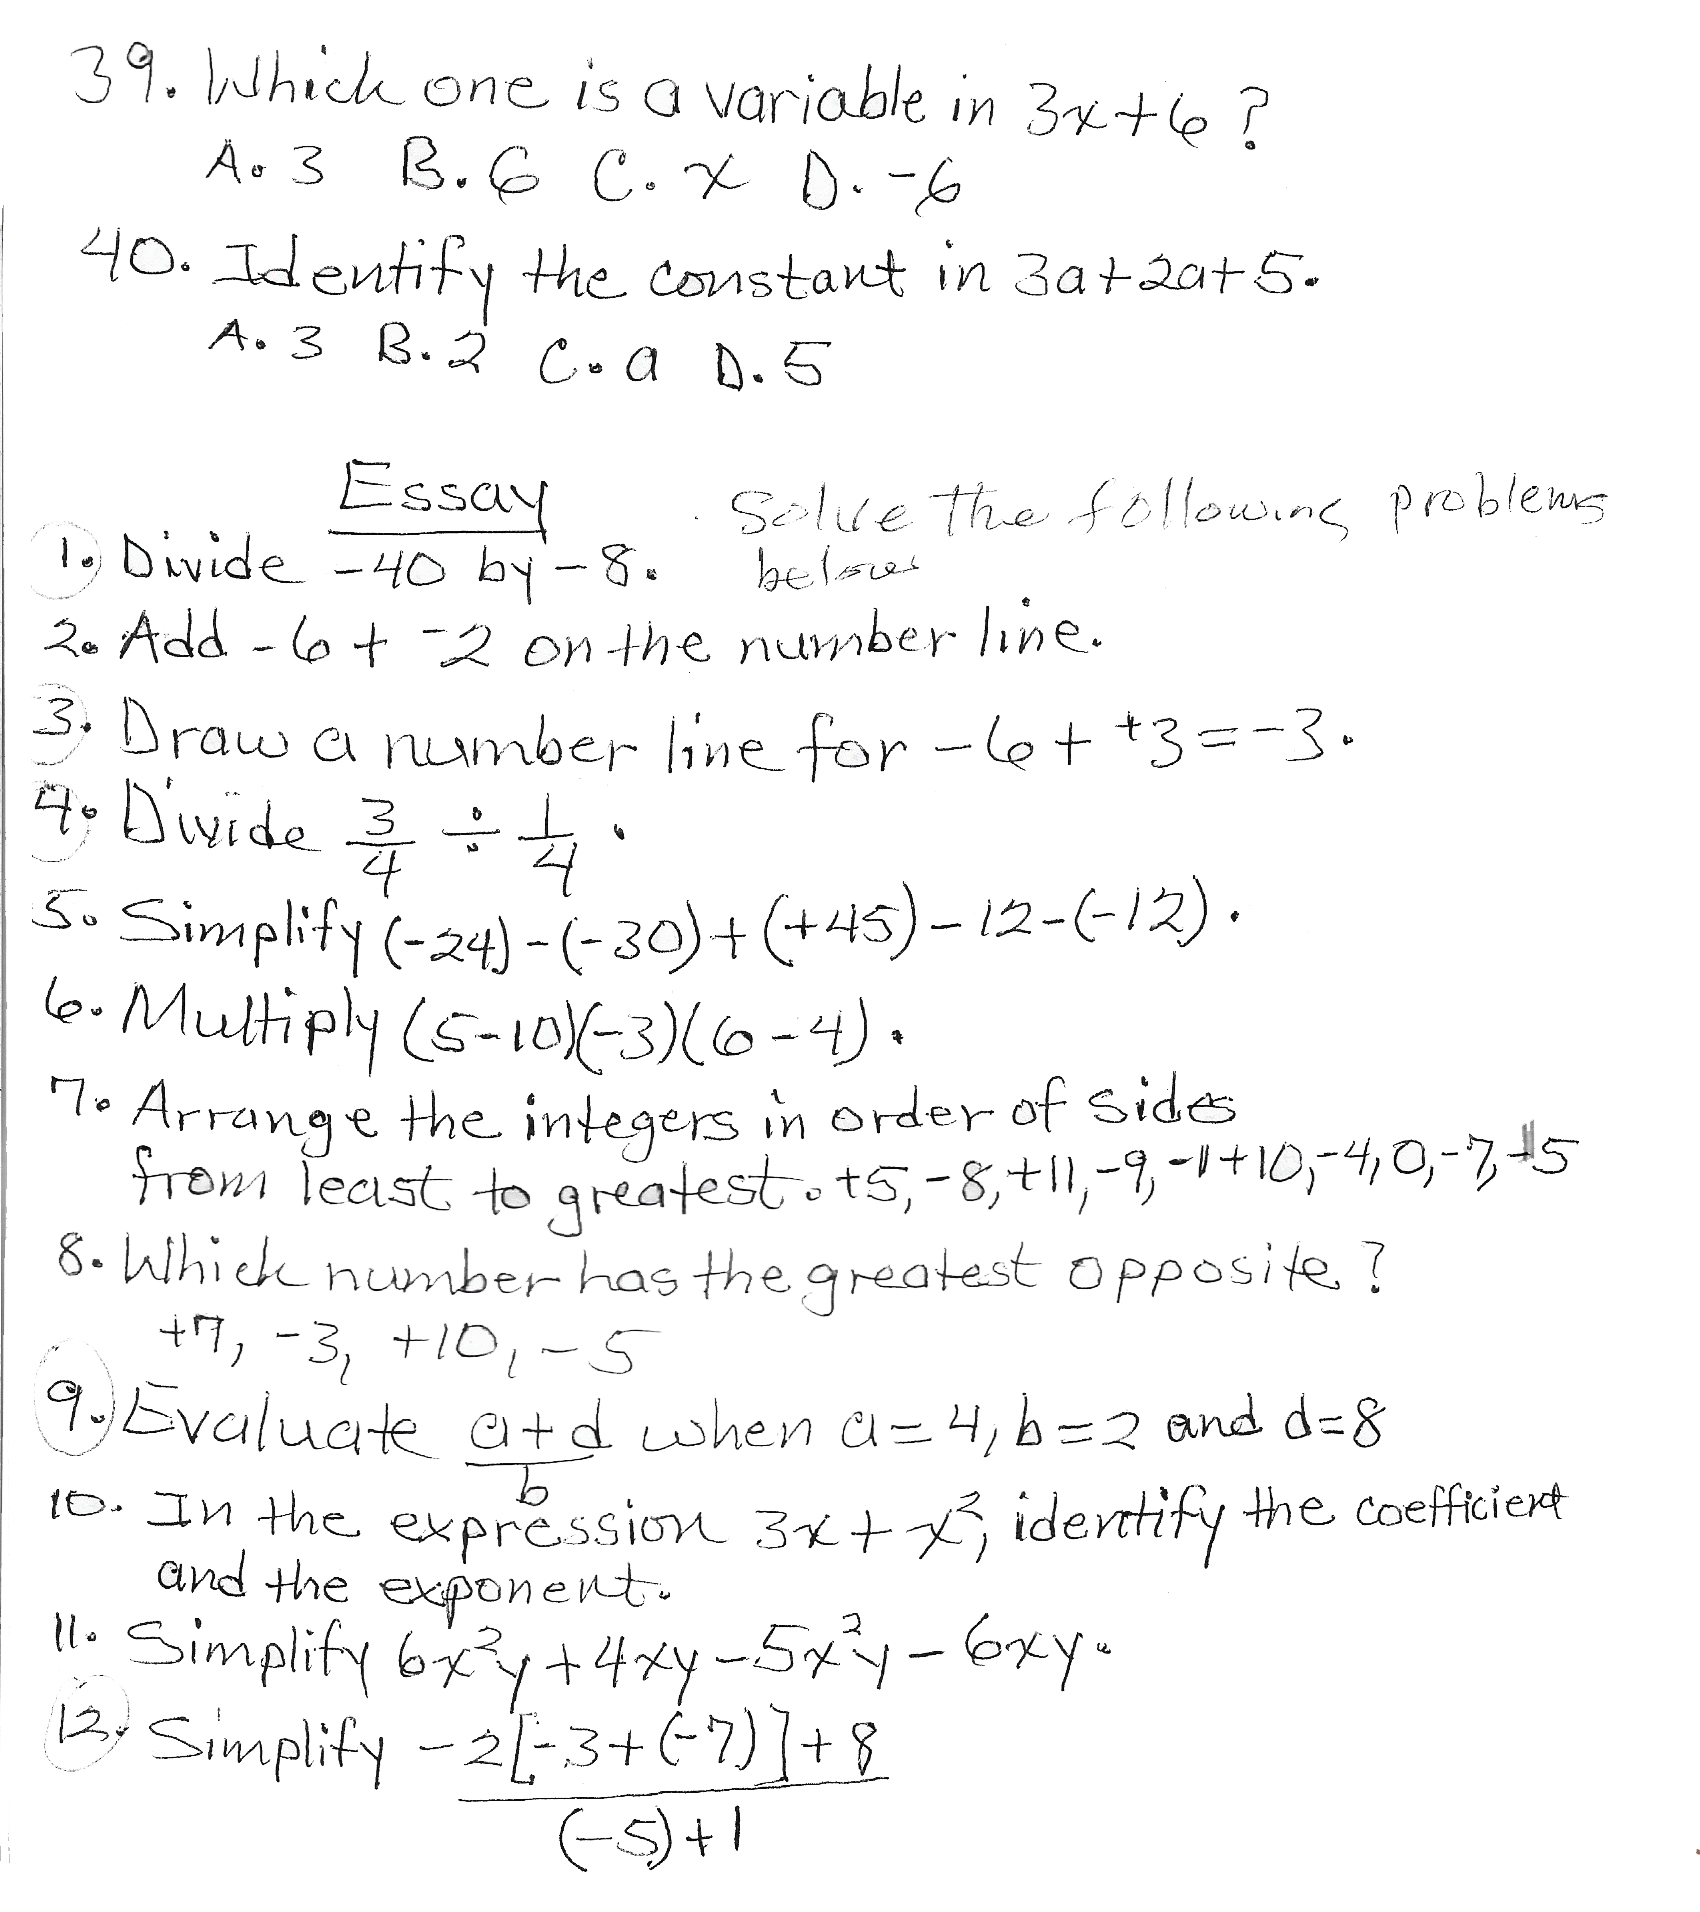 39. Which one is a variable in 3x+6?
A. 3 B. 6 C. x D. -6
40. Identify the constant in 3a+2a+5.
A. 3 B. 2 C. a D. 5
Essay
Solve the following problems
below
1. Divide -40 by -8.
2. Add -6 + -2 on the number line.
3. Draw a number line for -6 + +3 = -3.
4. Divide 3/4 ÷ 1/4.
5. Simplify (-24)-(-30)+(+45)-12-(-12).
6. Multiply (5-10)(-3)(6-4).
7. Arrange the integers in order of sides
from least to greatest. +5, -8, +11, -9, -1 +10, -4, 0, -7,
8. Which number has the greatest opposite?
+7, -3, +10, -5
9. Evaluate a+d/b when a=4, b=2 and d=8
10. In the expression 3x+x², identify the coefficient
and the exponent.
11. Simplify 6x²y+4xy-5x²y-6xy.
12. Simplify -2[-3+(-7)]+8
(-5)+1